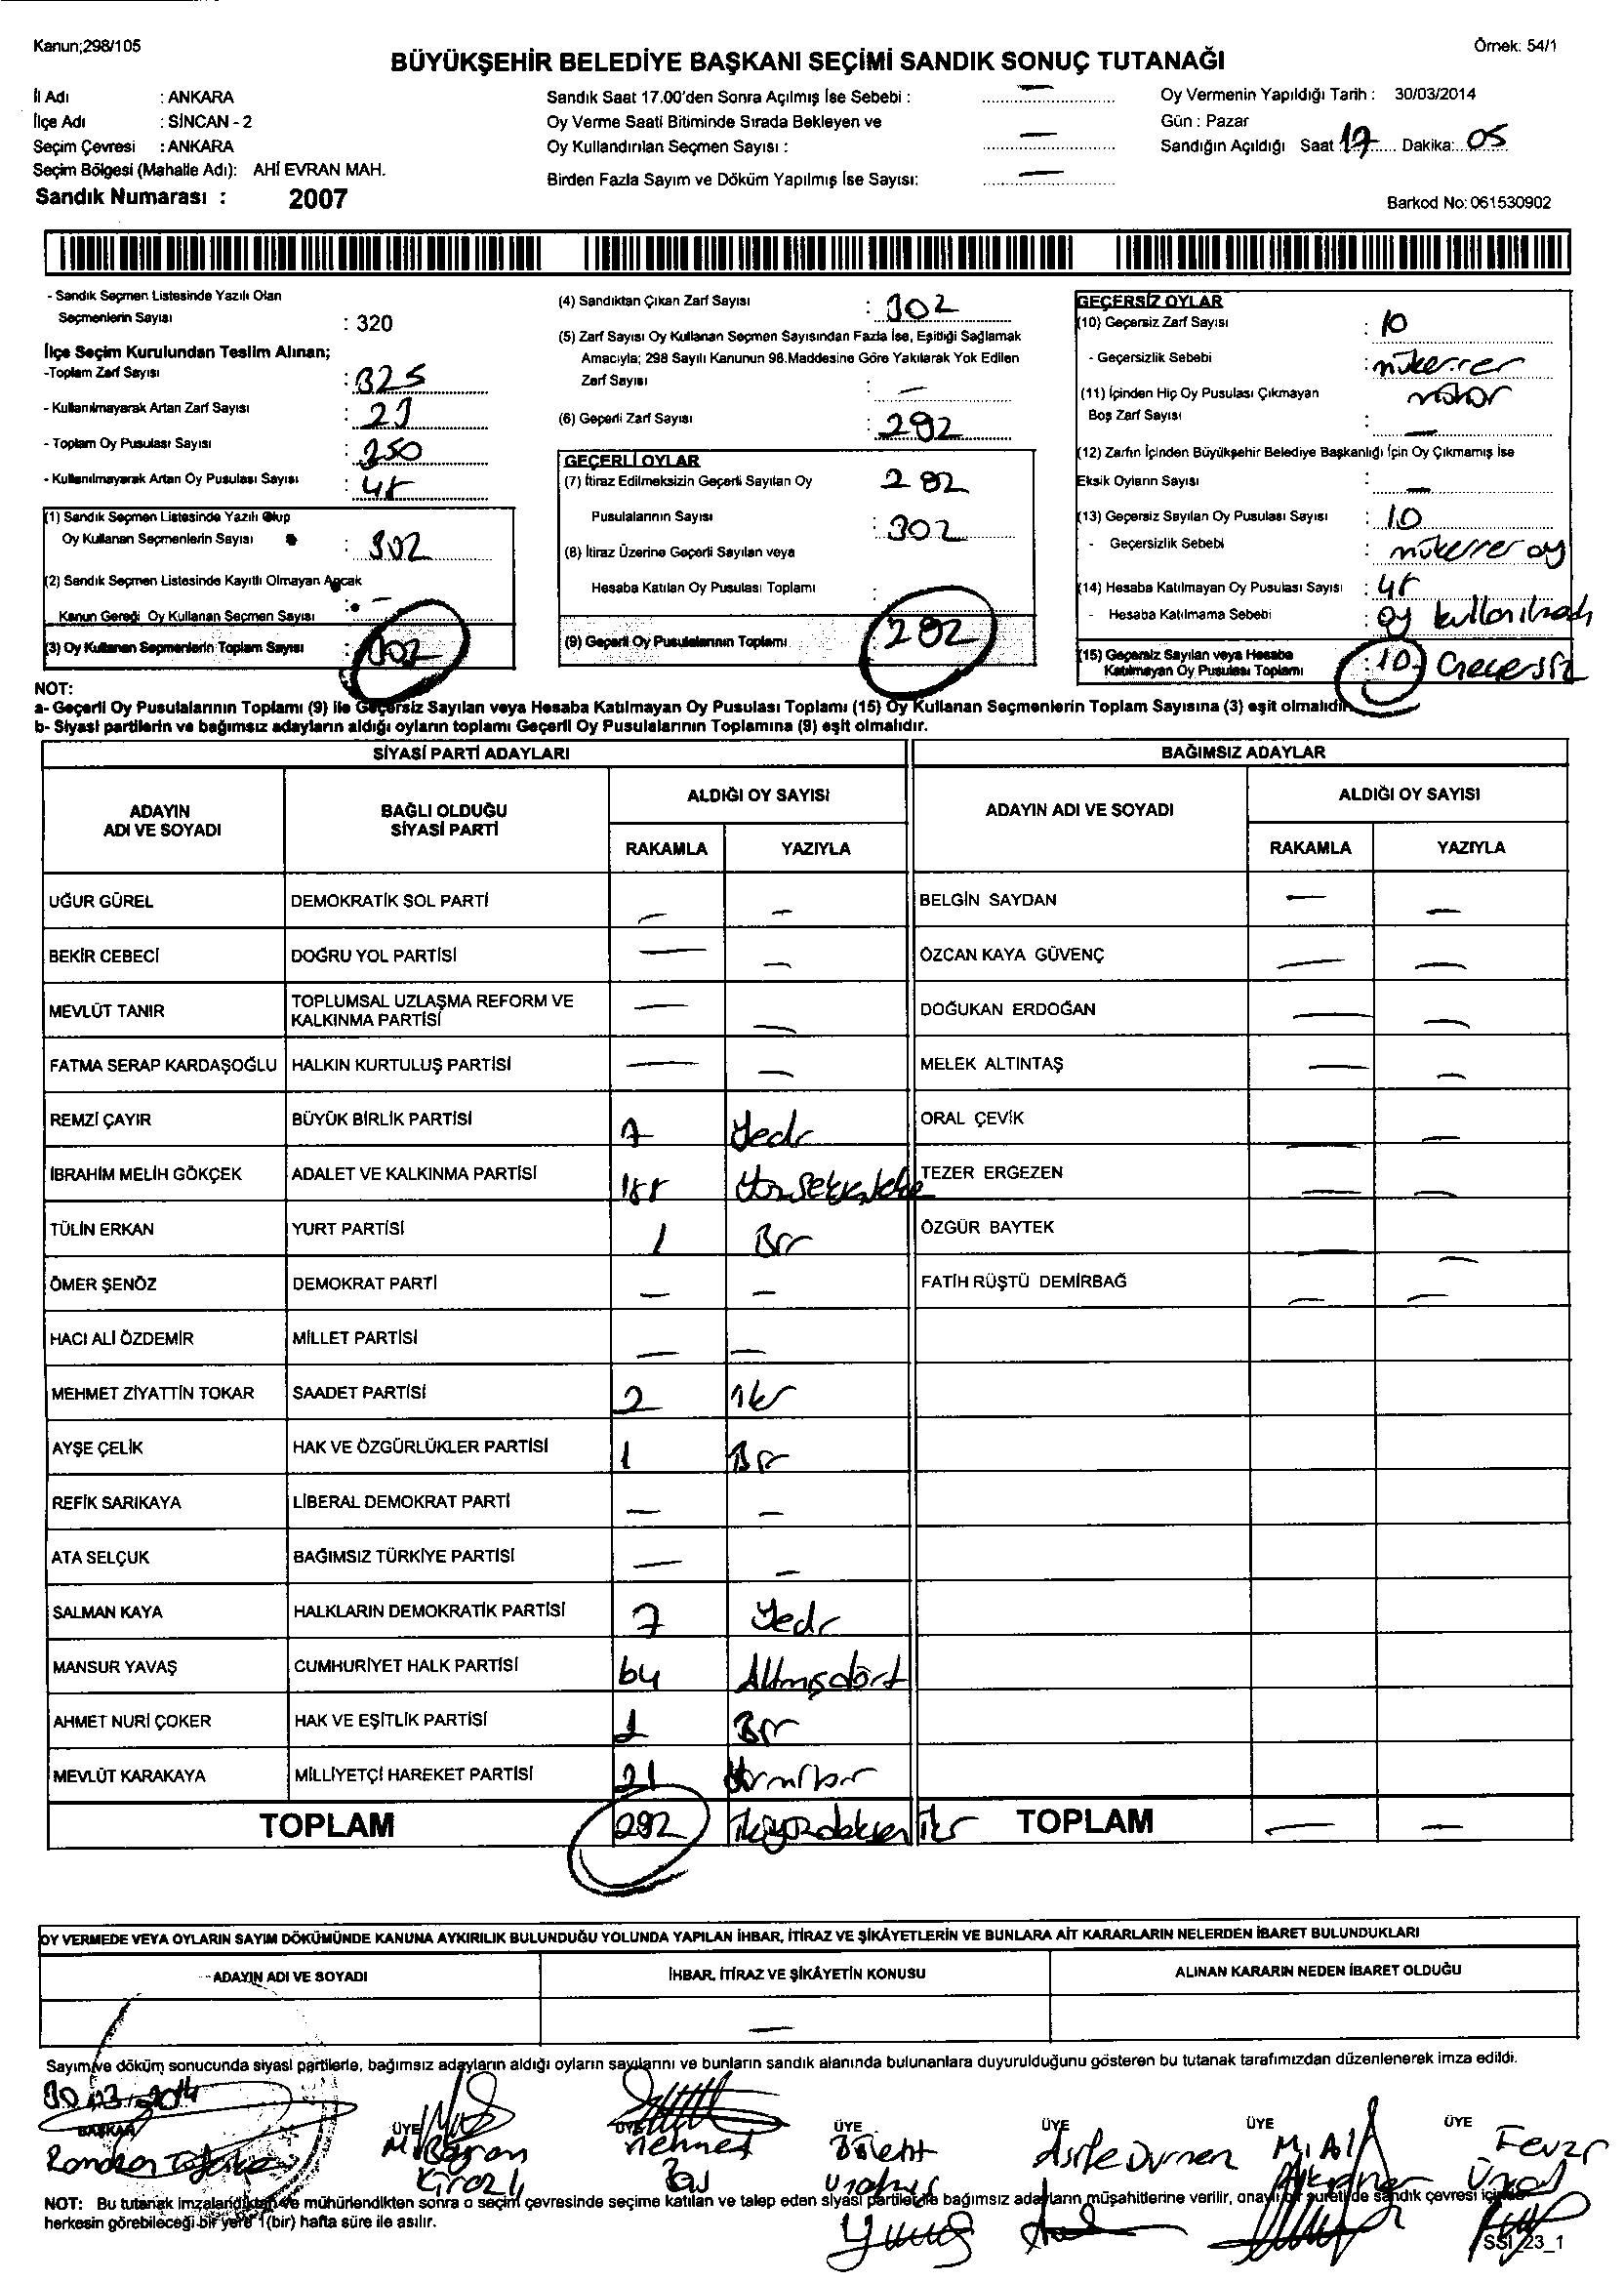 Kanun;298/105
Örnek: 54/1
BÜYÜKŞEHİR BELEDİYE BAŞKANI SEÇİMİ SANDIK SONUÇ TUTANAĞI
İl Adı : ANKARA
İlçe Adı : SİNCAN - 2
Seçim Çevresi : ANKARA
Seçim Bölgesi (Mahalle Adı): AHİ EVRAN MAH.
Sandık Numarası : 2007
Sandık Saat 17.00'den Sonra Açılmış İse Sebebi : —
Oy Verme Saati Bitiminde Sırada Bekleyen ve
Oy Kullandırılan Seçmen Sayısı : —
Birden Fazla Sayım ve Döküm Yapılmış İse Sayısı: —
Oy Vermenin Yapıldığı Tarih : 30/03/2014
Gün : Pazar
Sandığın Açıldığı Saat 17 Dakika: 05
Barkod No: 061530902
- Sandık Seçmen Listesinde Yazılı Olan
Seçmenlerin Sayısı : 320
İlçe Seçim Kurulundan Teslim Alınan;
-Toplam Zarf Sayısı : 325
- Kullanılmayarak Artan Zarf Sayısı :
- Toplam Oy Pusulası Sayısı : 350
- Kullanılmayarak Artan Oy Pusulası Sayısı : 48
(1) Sandık Seçmen Listesinde Yazılı Olup
Oy Kullanan Seçmenlerin Sayısı : 302
(2) Sandık Seçmen Listesinde Kayıtlı Olmayan Ancak
Kanun Gereği Oy Kullanan Seçmen Sayısı : —
(3) Oy Kullanan Seçmenlerin Toplam Sayısı : 302
(4) Sandıktan Çıkan Zarf Sayısı : 302
(5) Zarf Sayısı Oy Kullanan Seçmen Sayısından Fazla İse, Eşitliği Sağlamak
Amacıyla; 298 Sayılı Kanunun 98.Maddesine Göre Yakılarak Yok Edilen
Zarf Sayısı : —
(6) Geçerli Zarf Sayısı : 292
GEÇERLİ OYLAR
(7) İtiraz Edilmeksizin Geçerli Sayılan Oy 292
Pusulalarının Sayısı : 302
(8) İtiraz Üzerine Geçerli Sayılan veya
Hesaba Katılan Oy Pusulası Toplamı :
(9) Geçerli Oy Pusulalarının Toplamı : 292
GEÇERSİZ OYLAR
(10) Geçersiz Zarf Sayısı : 10
- Geçersizlik Sebebi : mükerrer
(11) İçinden Hiç Oy Pusulası Çıkmayan
Boş Zarf Sayısı : —
(12) Zarfın İçinden Büyükşehir Belediye Başkanlığı İçin Oy Çıkmamış İse
Eksik Oyların Sayısı : —
(13) Geçersiz Sayılan Oy Pusulası Sayısı : 10
- Geçersizlik Sebebi : mükerrer oy
(14) Hesaba Katılmayan Oy Pusulası Sayısı : 48
- Hesaba Katılmama Sebebi : oy
(15) Geçersiz Sayılan veya Hesaba
Katılmayan Oy Pusulası Toplamı : 10 Geçersiz
NOT:
a- Geçerli Oy Pusulalarının Toplamı (9) ile Geçersiz Sayılan veya Hesaba Katılmayan Oy Pusulası Toplamı (15) Oy Kullanan Seçmenlerin Toplam Sayısına (3) eşit olmalıdır.
b- Siyasi partilerin ve bağımsız adayların aldığı oyların toplamı Geçerli Oy Pusulalarının Toplamına (9) eşit olmalıdır.
SİYASİ PARTİ ADAYLARI
BAĞIMSIZ ADAYLAR
ADAYIN ADI VE SOYADI
BAĞLI OLDUĞU SİYASİ PARTİ
ALDIĞI OY SAYISI
RAKAMLA YAZIYLA
ADAYIN ADI VE SOYADI
ALDIĞI OY SAYISI
RAKAMLA YAZIYLA
UĞUR GÜREL DEMOKRATİK SOL PARTİ — — BELGİN SAYDAN — —
BEKİR CEBECİ DOĞRU YOL PARTİSİ — — ÖZCAN KAYA GÜVENÇ — —
MEVLÜT TANIR TOPLUMSAL UZLAŞMA REFORM VE KALKINMA PARTİSİ — — DOĞUKAN ERDOĞAN — —
FATMA SERAP KARDAŞOĞLU HALKIN KURTULUŞ PARTİSİ — — MELEK ALTINTAŞ — —
REMZİ ÇAYIR BÜYÜK BİRLİK PARTİSİ 7 Yedi ORAL ÇEVİK — —
İBRAHİM MELİH GÖKÇEK ADALET VE KALKINMA PARTİSİ 188 TEZER ERGEZEN — —
TÜLİN ERKAN YURT PARTİSİ 1 Bir ÖZGÜR BAYTEK — —
ÖMER ŞENÖZ DEMOKRAT PARTİ — — FATİH RÜŞTÜ DEMİRBAĞ — —
HACI ALİ ÖZDEMİR MİLLET PARTİSİ — —
MEHMET ZİYATTİN TOKAR SAADET PARTİSİ 2 iki
AYŞE ÇELİK HAK VE ÖZGÜRLÜKLER PARTİSİ 1 Bir
REFİK SARIKAYA LİBERAL DEMOKRAT PARTİ — —
ATA SELÇUK BAĞIMSIZ TÜRKİYE PARTİSİ — —
SALMAN KAYA HALKLARIN DEMOKRATİK PARTİSİ 7 Yedi
MANSUR YAVAŞ CUMHURİYET HALK PARTİSİ 64 Altmışdört
AHMET NURİ ÇOKER HAK VE EŞİTLİK PARTİSİ 1 Bir
MEVLÜT KARAKAYA MİLLİYETÇİ HAREKET PARTİSİ 21 Yirmibir
TOPLAM 292 TOPLAM — —
OY VERMEDE VEYA OYLARIN SAYIM DÖKÜMÜNDE KANUNA AYKIRILIK BULUNDUĞU YOLUNDA YAPILAN İHBAR, İTİRAZ VE ŞİKÂYETLERİN VE BUNLARA AİT KARARLARIN NELERDEN İBARET BULUNDUKLARI
ADAYIN ADI VE SOYADI İHBAR, İTİRAZ VE ŞİKÂYETİN KONUSU ALINAN KARARIN NEDEN İBARET OLDUĞU
—
Sayım ve döküm sonucunda siyasi partilerle, bağımsız adayların aldığı oyların sayılarını ve bunların sandık alanında bulunanlara duyurulduğunu gösteren bu tutanak tarafımızdan düzenlenerek imza edildi.
30.03.2014
BAŞKAN ÜYE ÜYE ÜYE ÜYE ÜYE ÜYE
Mehmet Bülent Fevzi
NOT: Bu tutanak imzalandıktan ve mühürlendikten sonra o seçim çevresinde seçime katılan ve talep eden siyasi partilerle bağımsız adayların müşahitlerine verilir, onaylı bir sureti de sandık çevresi içinde
herkesin görebileceği bir yere 1(bir) hafta süre ile asılır.
SSI_23_1